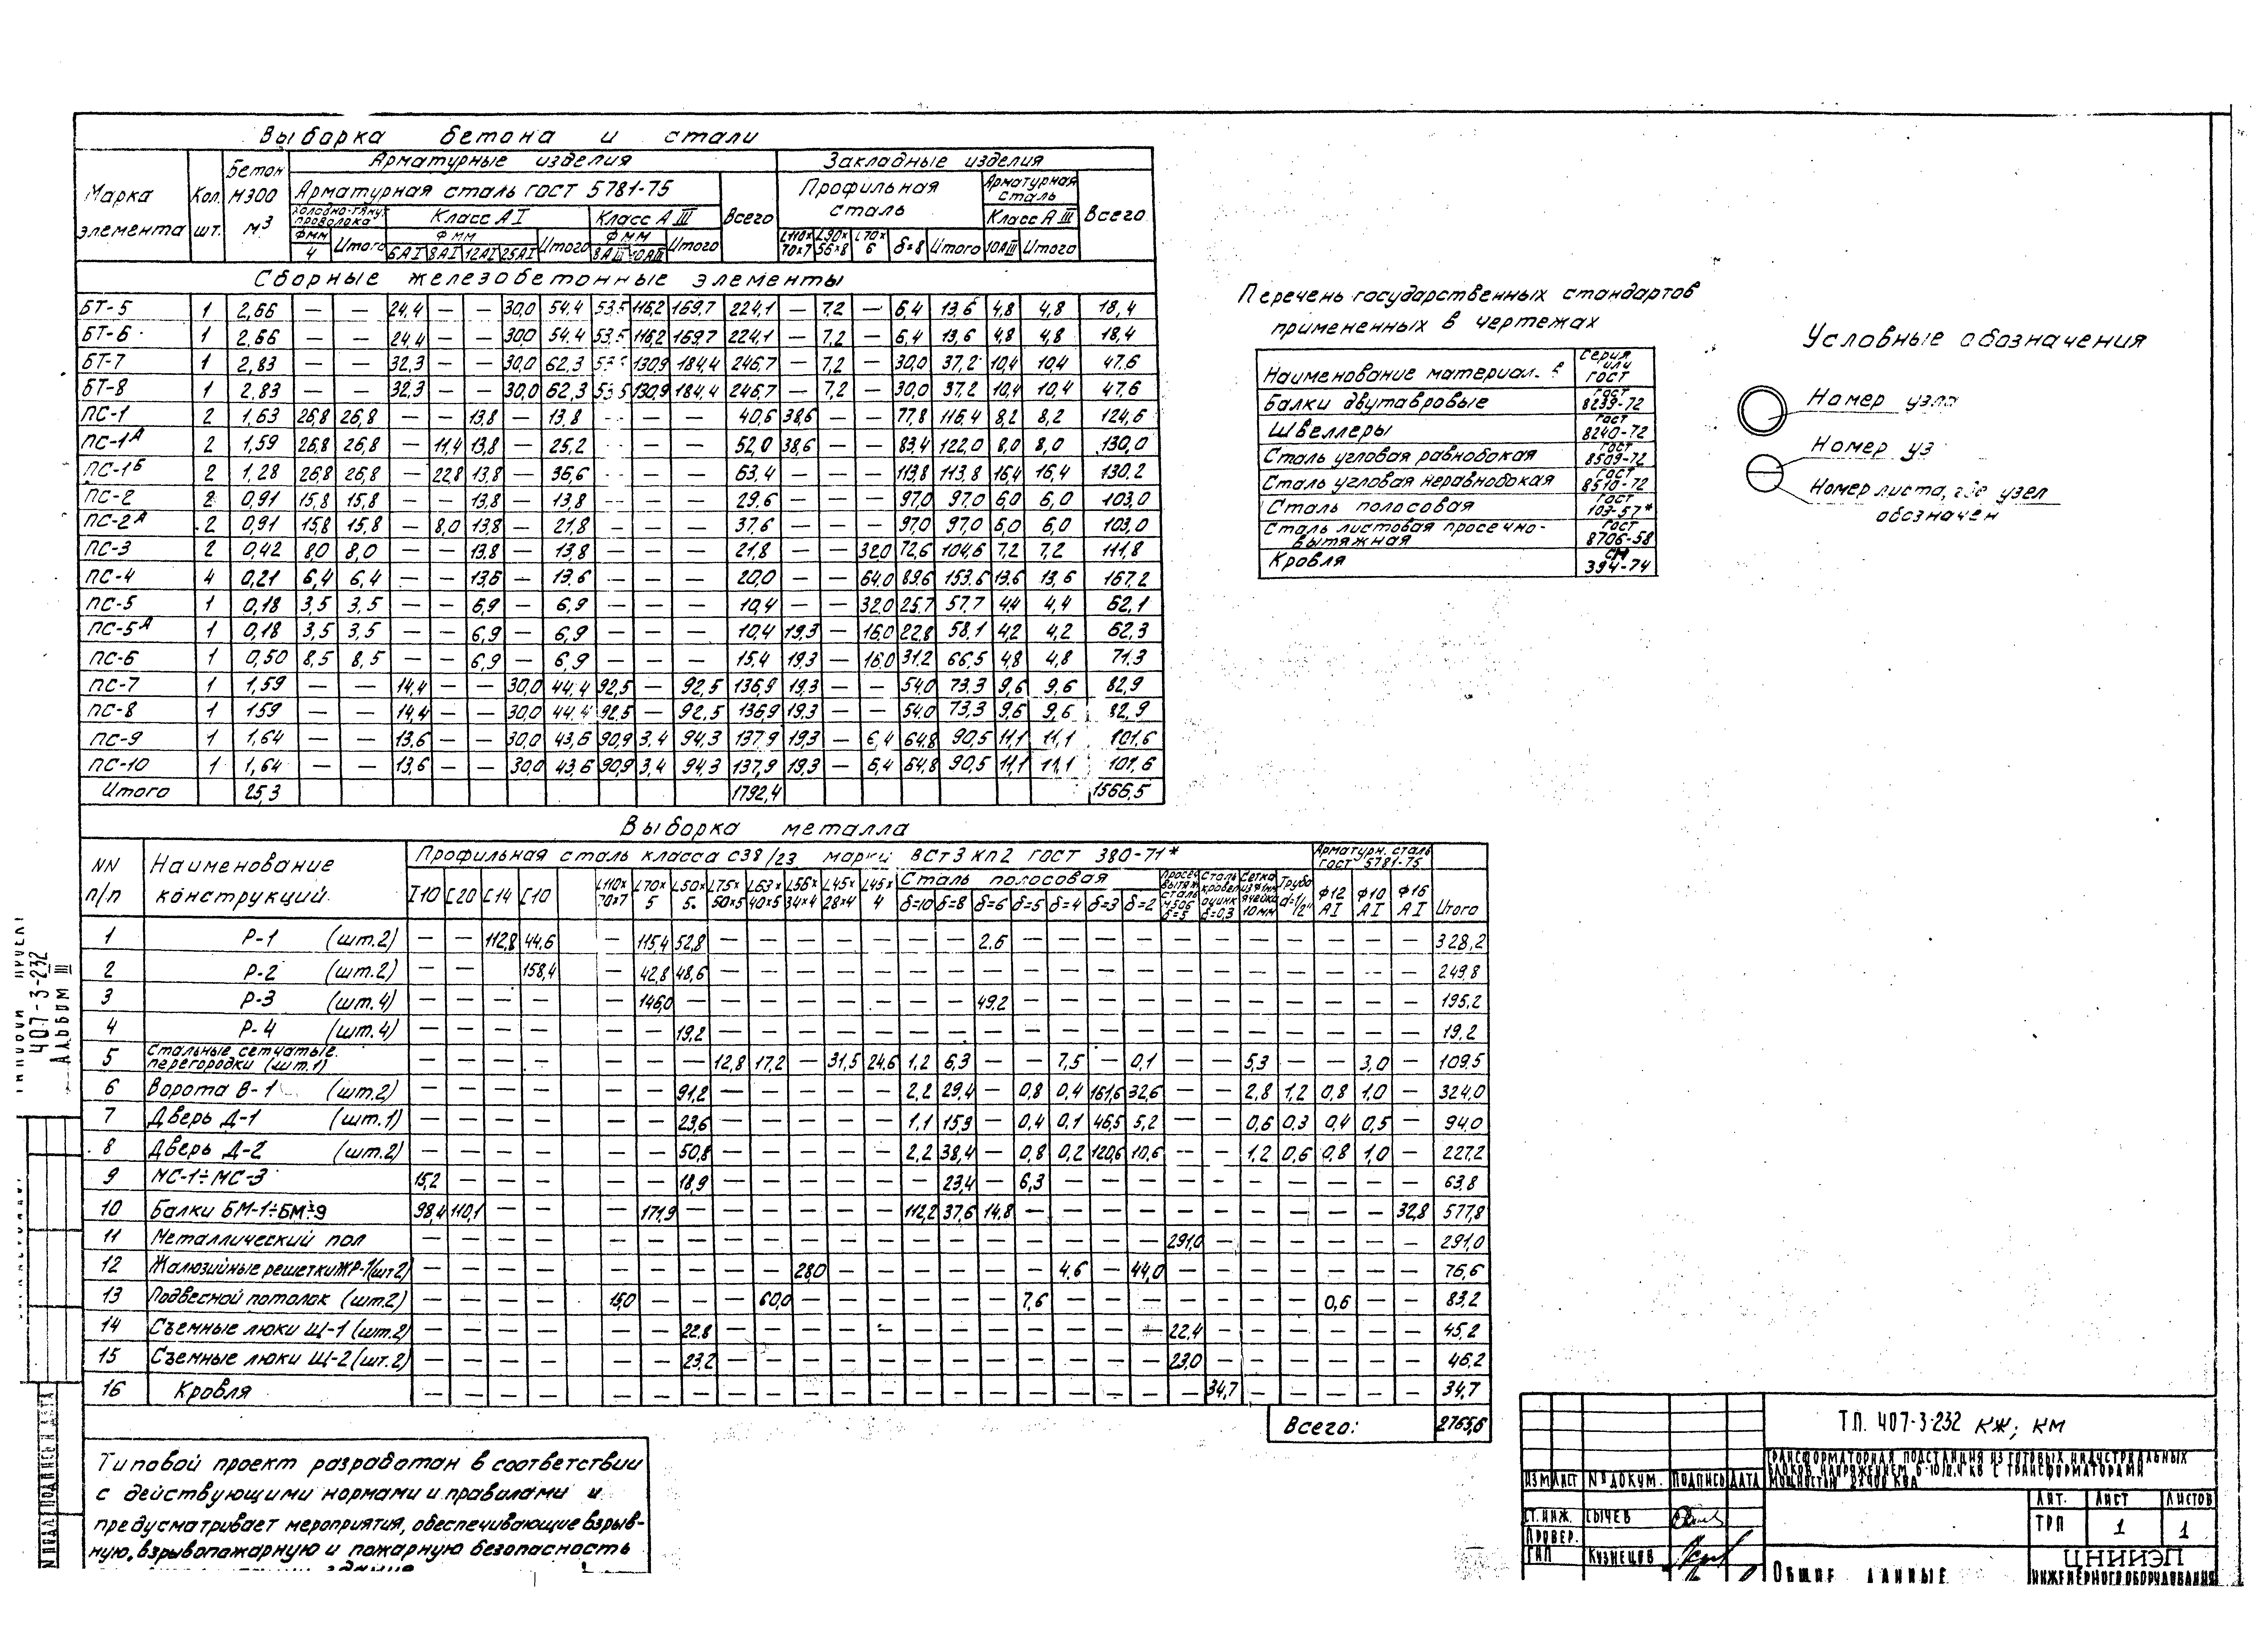 Выборка бетона и стали
Марка элемента Кол. шт. Бетон М300 м³ Арматурные изделия Закладные изделия
Арматурная сталь гост 5781-75 Всего Профильная сталь Арматурная сталь Всего
Класс А I Класс А III Класс А III
Фмм Итого Ф мм Итого Ф мм Итого L110× 70×7 L90× 56×8 L70× 6 δ=8 Итого 10АIII Итого
4 6АI 8АI 12АI 25АI 8АIII 10АIII
Сборные железобетонные элементы
БТ-5 1 2,66 — — 24,4 — — 30,0 54,4 53,5 116,2 169,7 224,1 — 7,2 — 6,4 13,6 4,8 4,8 18,4
БТ-6 1 2,66 — — 24,4 — — 30,0 54,4 53,5 116,2 169,7 224,1 — 7,2 — 6,4 13,6 4,8 4,8 18,4
БТ-7 1 2,83 — — 32,3 — — 30,0 62,3 130,9 184,4 246,7 — 7,2 — 30,0 37,2 10,4 10,4 47,6
БТ-8 1 2,83 — — 32,3 — — 30,0 62,3 53,5 130,9 184,4 246,7 — 7,2 — 30,0 37,2 10,4 10,4 47,6
ПС-1 2 1,63 26,8 26,8 — — 13,8 — 13,8 — — — 40,6 38,6 — — 77,8 116,4 8,2 8,2 124,6
ПС-1А 2 1,59 26,8 26,8 — 11,4 13,8 — 25,2 — — — 52,0 38,6 — — 83,4 122,0 8,0 8,0 130,0
ПС-1Б 2 1,28 26,8 26,8 — 22,8 13,8 — 36,6 — — — 63,4 — — — 113,8 113,8 16,4 16,4 130,2
ПС-2 2 0,91 15,8 15,8 — — 13,8 — 13,8 — — — 29,6 — — — 97,0 97,0 6,0 6,0 103,0
ПС-2А 2 0,91 15,8 15,8 — 8,0 13,8 — 21,8 — — — 37,6 — — — 97,0 97,0 6,0 6,0 103,0
ПС-3 2 0,42 8,0 8,0 — — 13,8 — 13,8 — — — 21,8 — — 32,0 72,6 104,6 7,2 7,2 111,8
ПС-4 4 0,21 6,4 6,4 — — 13,6 — 13,6 — — — 20,0 — — 64,0 89,6 153,6 13,6 13,6 167,2
ПС-5 1 0,18 3,5 3,5 — — 6,9 — 6,9 — — — 10,4 — — 32,0 25,7 57,7 4,4 4,4 62,1
ПС-5А 1 0,18 3,5 3,5 — — 6,9 — 6,9 — — — 10,4 19,3 — 16,0 22,8 58,1 4,2 4,2 62,3
ПС-6 1 0,50 8,5 8,5 — — 6,9 — 6,9 — — — 15,4 19,3 — 16,0 31,2 66,5 4,8 4,8 71,3
ПС-7 1 1,59 — — 14,4 — — 30,0 44,4 92,5 — 92,5 136,9 19,3 — — 54,0 73,3 9,6 9,6 82,9
ПС-8 1 1,59 — — 14,4 — — 30,0 44,4 92,5 — 92,5 136,9 19,3 — — 54,0 73,3 9,6 9,6 82,9
ПС-9 1 1,64 — — 13,6 — — 30,0 43,6 90,9 3,4 94,3 137,9 19,3 — 6,4 64,8 90,5 11,1 11,1 101,6
ПС-10 1 1,64 — — 13,6 — — 30,0 43,6 90,9 3,4 94,3 137,9 19,3 — 6,4 64,8 90,5 11,1 11,1 101,6
Итого 25,3 1792,4 1566,5
Перечень государственных стандартов
примененных в чертежах
Серия или ГОСТ
Балки двутавровые гост 8239-72
Швеллеры гост 8240-72
Сталь угловая равнобокая гост 8509-72
Сталь угловая неравнобокая гост 8510-72
Сталь полосовая гост 103-57*
Сталь листовая просечно-вытяжная гост 8706-58
Кровля СМ 394-74
Условные обозначения
Номер узла
Номер уз
Номер листа, где узел
обозначен
Выборка металла
NN п/п Наименование конструкций Профильная сталь класса С38/23 марки ВСт3 кп2 гост 380-71* Арматурн. сталь гост 5781-75 Итого
I10 [20 [14 [10 L110× 70×7 L70× 5 L50× 5 L75× 50×5 L63× 40×5 L56× 34×4 L45× 28×4 L45× 4 Сталь полосовая Труба Ф12 АI Ф10 АI Ф16 АI
δ=10 δ=8 δ=6 δ=5 δ=4 δ=3 δ=2
1 Р-1 (шт.2) — — 112,8 44,6 — 115,4 52,8 — — — — — — — 2,6 — — — — — — — — — — — 328,2
2 Р-2 (шт.2) — — 158,4 — 42,8 48,6 — — — — — — — — — — — — — — — — — — — 249,8
3 Р-3 (шт.4) — — — — — 146,0 — — — — — — — — 49,2 — — — — — — — — — — — 195,2
4 Р-4 (шт.4) — — — — — — 19,2 — — — — — — — — — — — — — — — — — — — 19,2
5 Стальные сетчатые перегородки (шт.1) — — — — — — — 12,8 17,2 — 31,5 24,6 1,2 6,3 — — 7,5 — 0,1 — — 5,3 — — 3,0 — 109,5
6 Ворота В-1 (шт.2) — — — — — — 91,2 — — — — — 2,2 29,4 — 0,8 0,4 161,6 32,6 — — 2,8 1,2 0,8 1,0 — 324,0
7 Дверь Д-1 (шт.1) — — — — — — 23,6 — — — — — 1,1 15,9 — 0,4 0,1 46,5 5,2 — — 0,6 0,3 0,4 0,5 — 94,0
8 Дверь Д-2 (шт.2) — — — — — — 50,8 — — — — — 2,2 38,4 — 0,8 0,2 120,6 10,6 — — 1,2 0,6 0,8 1,0 — 227,2
9 МС-1÷МС-3 15,2 — — — — — 18,9 — — — — — — 23,4 — 6,3 — — — — — — — — — — 63,8
10 Балки БМ-1÷БМ-9 98,4 110,1 — — — 171,9 — — — — — — 112,2 37,6 14,8 — — — — — — — — — — 32,8 577,8
11 Металлический пол — — — — — — — — — — — — — — — — — — — 291,0 — — — — — — 291,0
12 Жалюзийные решетки ЖР-1 (шт2) — — — — — — — — — 28,0 — — — — — — 4,6 — 44,0 — — — — — — — 76,6
13 Подвесной потолок (шт.2) — — — — 15,0 — — — 60,0 — — — — — — 7,6 — — — — — — — 0,6 — — 83,2
14 Съемные люки Щ-1 (шт.2) — — — — — — 22,8 — — — — — — — — — — — — 22,4 — — — — — — 45,2
15 Съемные люки Щ-2 (шт.2) — — — — — — 23,2 — — — — — — — — — — — — 23,0 — — — — — — 46,2
16 Кровля — — — — — — — — — — — — — — — — — — — — 34,7 — — — — — 34,7
Всего: 2765,6
Типовой проект разработан в соответствии
с действующими нормами и правилами и
предусматривает мероприятия, обеспечивающие взрыв-
ную, взрывопожарную и пожарную безопасность
407-3-232
Альбом III
Т.П. 407-3-232 КЖ; КМ
Трансформаторная подстанция из готовых индустриальных
блоков напряжением 6-10/0,4 кв с трансформаторами
мощностью 2×400 ква
Изм Лист № докум. Подпись Дата
Лит. Лист Листов
ТРП 1 1
Ст. инж. Сычев
Провер.
ГИП Кузнецов
Общие данные
ЦНИИЭП
инженерного оборудования